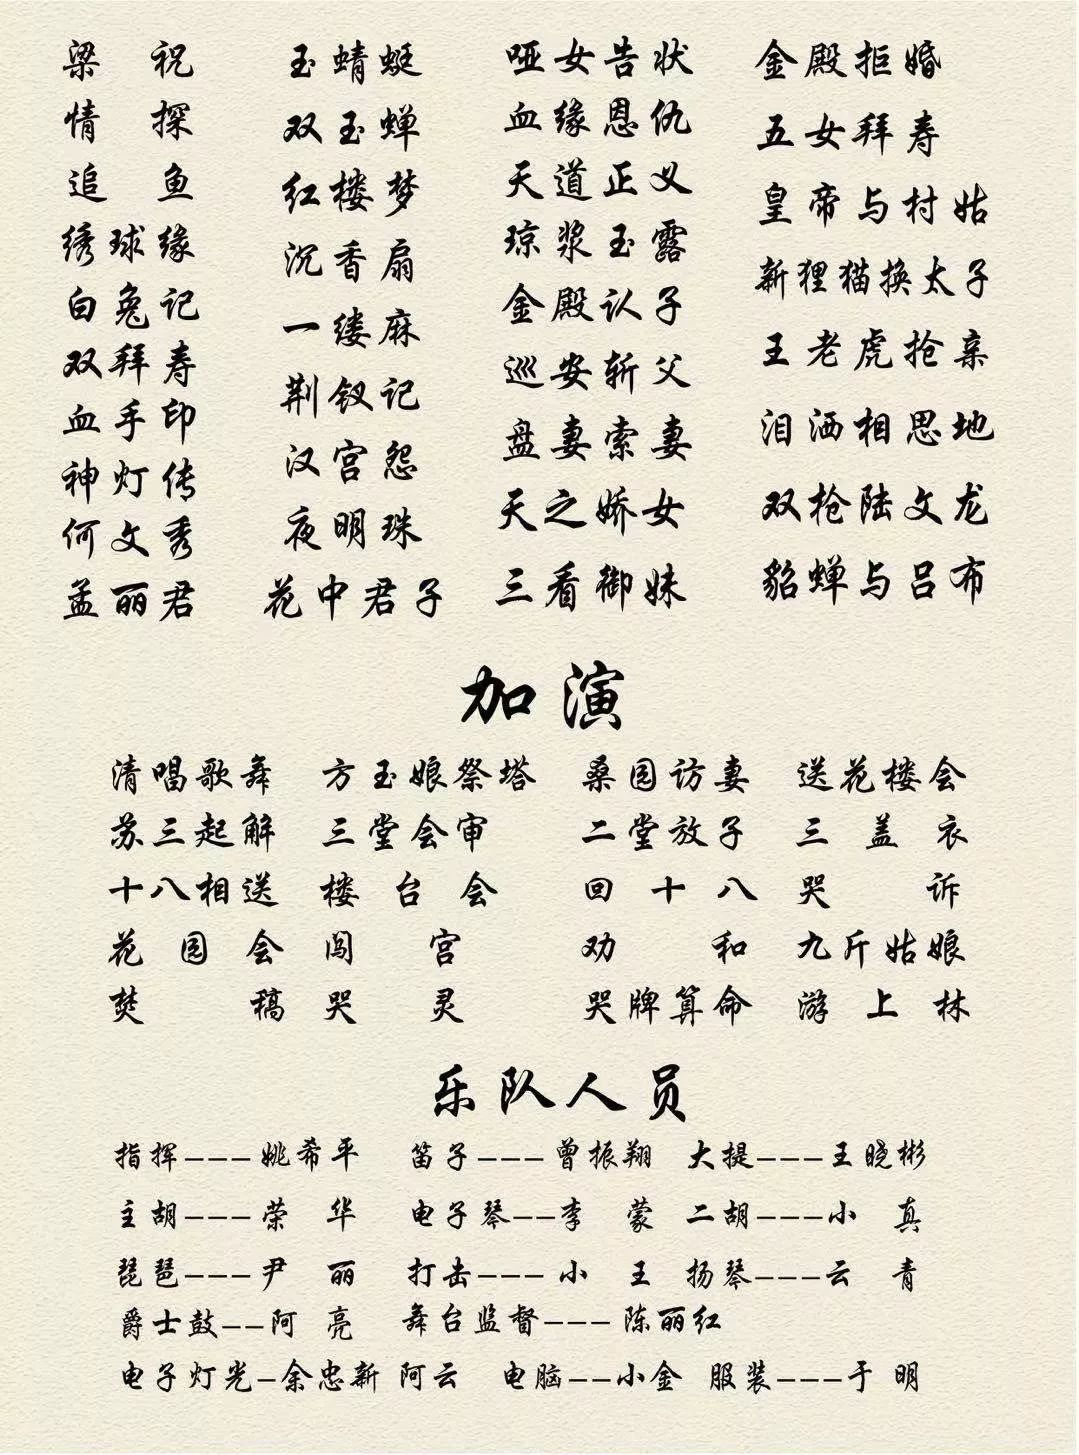 梁祝 玉蜻蜓 哑女告状 金殿拒婚
情探 双玉蝉 血缘恩仇 五女拜寿
追鱼 红楼梦 天道正义 皇帝与村姑
绣球缘 沉香扇 琼浆玉露 新狸猫换太子
白兔记 一缕麻 金殿认子 王老虎抢亲
双拜寿 荆钗记 巡安斩父 泪洒相思地
血手印 汉宫怨 盘妻索妻 双枪陆文龙
神灯传 夜明珠 天之娇女 貂蝉与吕布
何文秀 花中君子 三看御妹
孟丽君
加演
清唱歌舞 方玉娘祭塔 桑园访妻 送花楼会
苏三起解 三堂会审 二堂放子 三盖衣
十八相送 楼台会 回十八 哭诉
花园会 闯宫 劝和 九斤姑娘
焚稿 哭灵 哭牌算命 游上林
乐队人员
指挥---姚希平 笛子---曾振翔 大提---王晓彬
主胡---荣华 电子琴--李蒙 二胡---小真
琵琶---尹丽 打击---小王 扬琴---云青
爵士鼓--阿亮 舞台监督---陈丽红
电子灯光-余忠新 阿云 电脑--小金 服装---于明